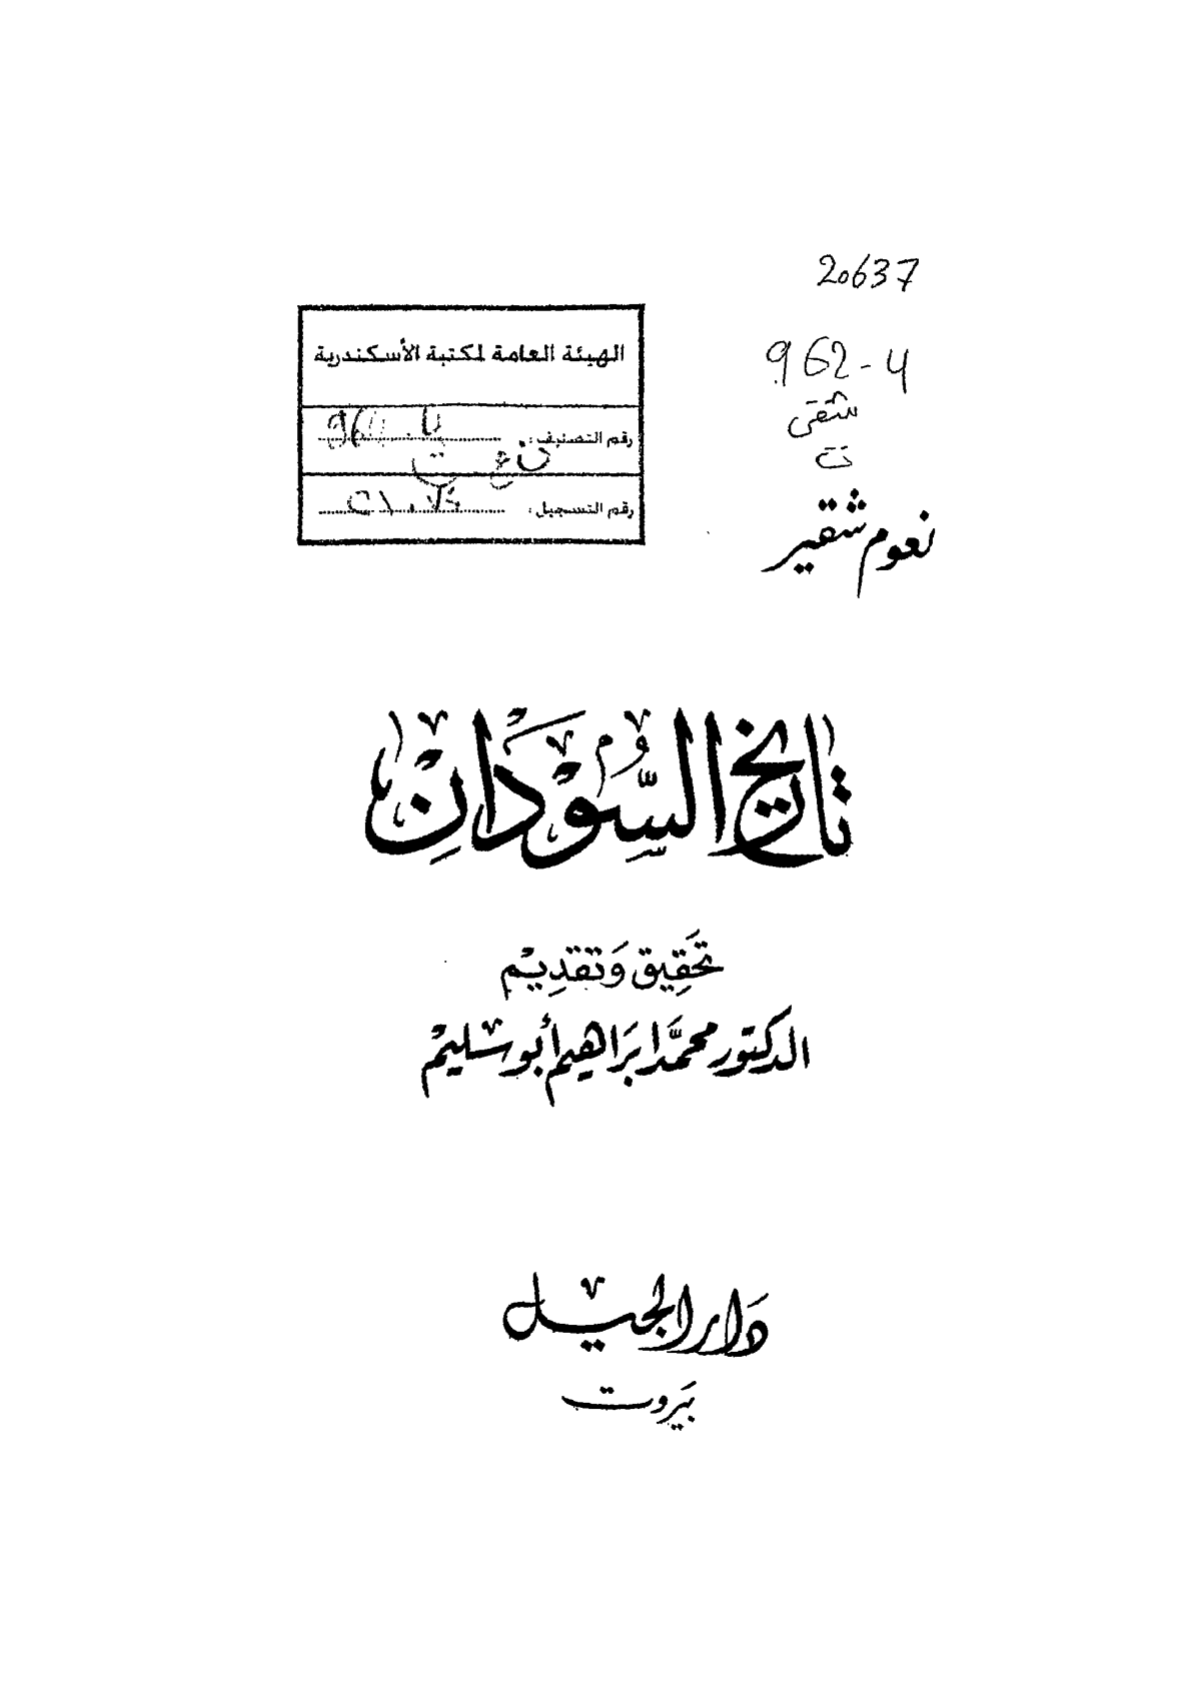 20637
962-4
شقى
ت
الهيئة العامة لمكتبة الأسكندرية
رقم التصنيف:
رقم التسجيل:
نعوم شقير
تاريخ السُّوْدَانِ
تحَقِيق وَتقدِيْم
الدكتور محمَّد ابرَاهيم أبو سليْم
دَار الجيْل
بَيروت